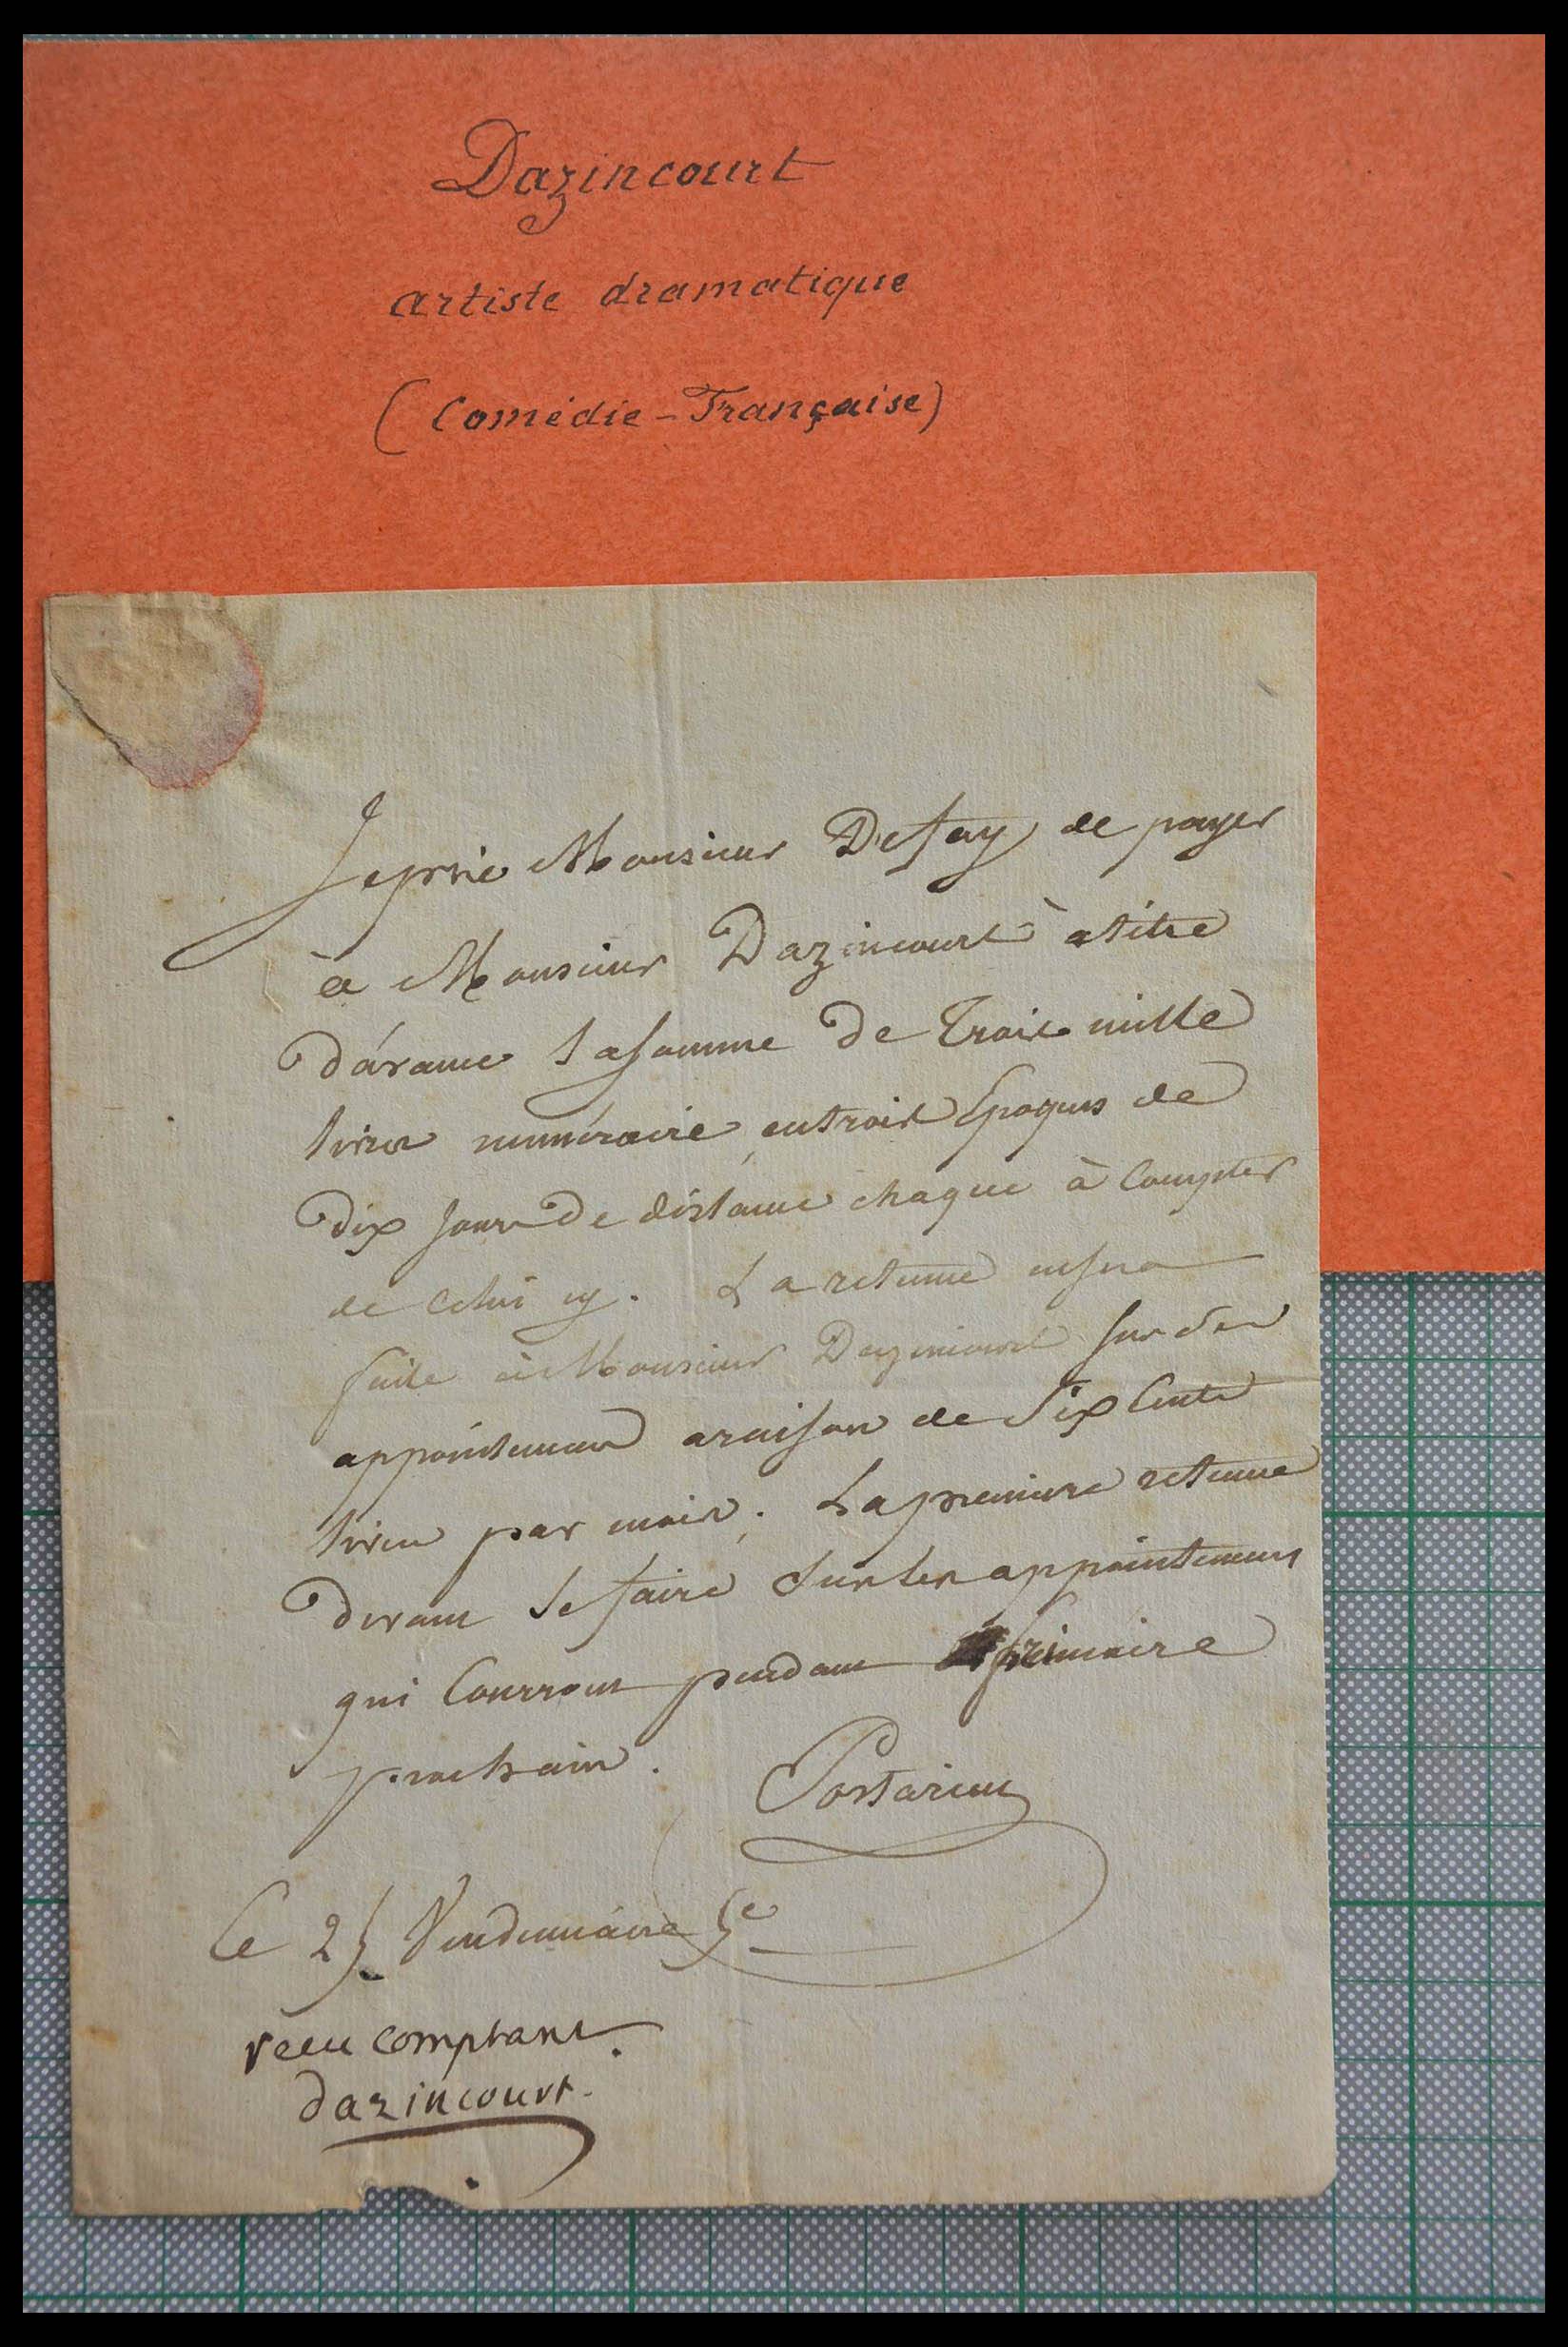 Dazincourt
artiste dramatique
(Comédie-Française)
Je prie Monsieur Defay de payer
à Monsieur Dazincourt à titre
d'avance la somme de Trois mille
livres numéraire, en trois Epoques de
dix jours de distance chaque à Compter
de celui cy. La retenue en sera
faite à Monsieur Dazincourt sur ses
appointemens a raison de Six Cents
livres par mois. La premiere retenue
devant se faire sur les appointemens
qui Courront pendant frimaire
prochain.
Le 25 Vendemiaire 5e
recu comptant.
dazincourt.